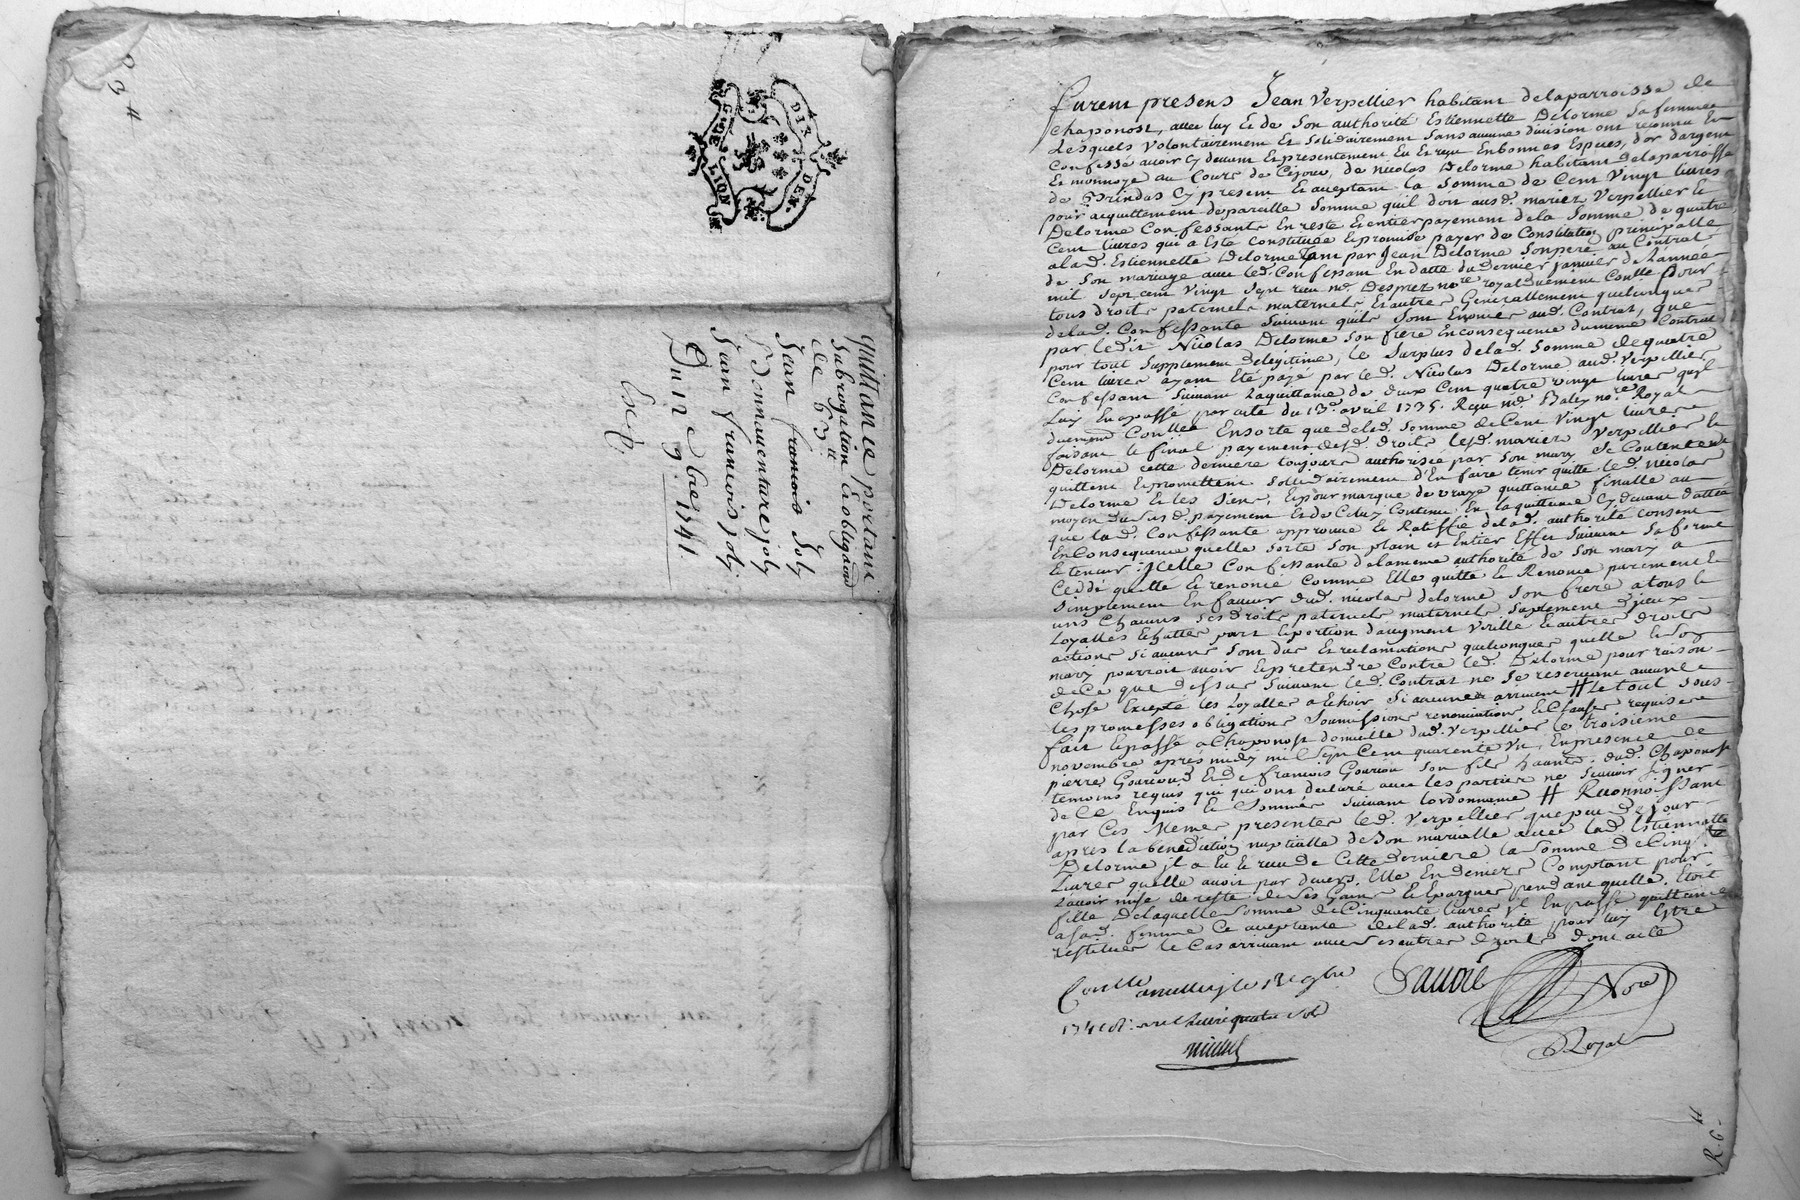 R 3 #
GNLTE DE LION
DIX DEN.
quittance portant
subrogation & obligaõn
de 63 ll
Jean françois Joly
& Bonnaventure joly
Jean françois joly
Du 12 9bre 1741
Exp.
furent presens Jean Verpellier habitant delaparroisse de
Chaponost, avec luy Et de Son authorité Estiennette Delorme Sa femme
Lesquels Volontairement Et Solidairement Sans aucune division ont reconnu Et
Confessé avoir Cy devant Et presentement Eu Et receu En bonnes Especes, d'or d'argent
Et monnoye au Cours de Ce jour, de Nicolas Delorme habitant delaparroisse
de Brindas Cy present Et aceptant la Somme de Cent Vingt livres
pour acquittement depareille Somme quil doit ausd. mariez Verpellier Et
Delorme Confessants En reste Et entier payement dela Somme de quatre
Cent livres qui a Esté constituée Et promise payer de Constitution principalle
alad. Estiennette Delorme tant par Jean Delorme Son pere au Contrat
de Son mariage avec led. Confessant En datte du dernier janvier de L'année
mil Sept cent Vingt Sept receu me. Desprez nore. royal Duement Conllé pour
tous droits paternels maternels Et autres Generallement quelconques
delad. Confessante Suivant quils Sont Enoncés aud. Contrat, que
par ledit Nicolas Delorme Son frere En consequence dumeme Contrat
pour tout Supplement delegitime, le Surplus delad. Somme dequatre
Cent livres ayant Eté payé par led. Nicolas Delorme aud. Verpellier
Confessant Suivant Laquittance de deux Cent quatre vingt livres quil
Luy En a passé par acte du 13e. avril 1735. Receu me. Balley nore. Royal
duement Conllée Ensorte que delad. Somme de Cent Vingt livres
faisant le final payement desd. droits lesd. mariez Verpellier Et
Delorme cette derniere toujours authorisée par Son mary Se Contentent
quittent Et promettent Solidairement d'En faire tenir quitte led. Nicolas
Delorme Et les Siens, Et pour marque de vraye quittance finalle au
moyen du susd. payement Et de Celuy Contenu En laquittance Cy devant dattée
que lad. Confessante approuve Et Ratiffie delad. authorité consent
En Consequence quelle Sorte Son plain et Entier Effet Suivant Sa forme
Et teneur : Icelle Confessante delameme authorité de Son mary a
Ceddé quitté Et renoncé Comme Elle quitte Et Renonce purement Et
Simplement En faveur dud. Nicolas delorme Son frere a tous Et
uns Chacuns Ses droits paternels maternels Suplement d'jceux
Loyalles Echattes part Et portion d'augment Virille Et autres droits
actions Si aucuns Sont dus Et reclamations quelconques quelle Et Son
mary pourroit avoir Et pretendre Contre led. Delorme pour raison
de Ce que dessus Suivant led. Contrat ne Se reservant aucune
Chose Excepté les Loyalles a Echoir Si aucunes arrivent # Le tout Sous
les promesses obligations Soumissions renonciations Et Clauses requises
fait Et passé a Chaponost domicille dud. Verpellier le troisieme
novembre après midy mil Sept Cent quarente Vn, En presence de
pierre Gouriou Et de françois Gouriou Son fils habnts. dud. Chaponost
temoins requis qui qui ont declaré avec les parties ne Sçavoir Signer
de Ce Enquis Et Sommés Suivant L'ordonnance # Reconnoissant
par Ces Memes presentes led. Verpellier que peu de jours
après la benediction nuptialle de Son mariage avec lad. Estiennette
Delorme il a Eu Et receu de Cette derniere la Somme de Cinqte
Livres quelle avoit par devers Elle En deniers Comptant pour
L'avoir mise de reste de Ses Gains Et Epargnes pendant quelle Etoit
fille De laquelle Somme de Cinquante livres il En passe quittance
a Sad. femme Ce aceptante delad. authorité pour luy Estre
restituée le Cas arrivant avec Ses autres droits dont acte
Conllé le 12e 9bre
1741
Nore
Royal
R. 6. #